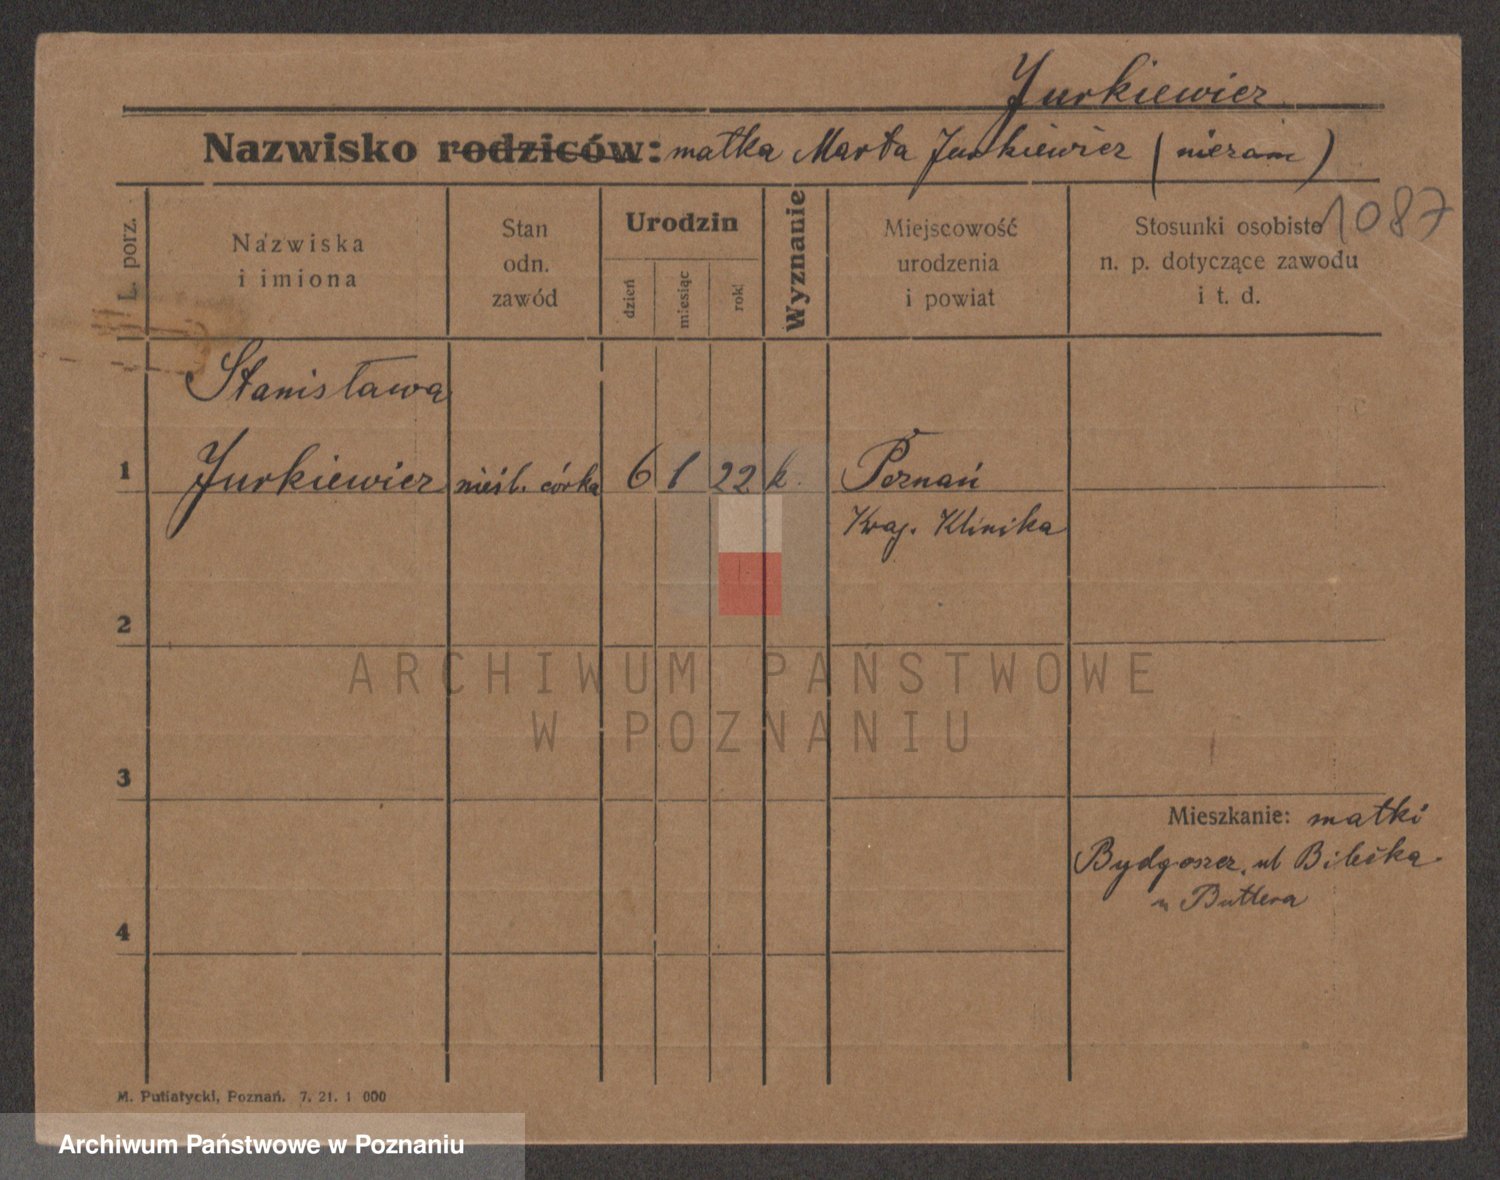 Jurkiewicz
Nazwisko rodziców: matka Marta Jurkiewicz (niezam)
1087
L. porz.
Nazwiska
i imiona
Stan
odn.
zawód
Urodzin
dzień
miesiąc
rok
Wyznanie
Miejscowość
urodzenia
i powiat
Stosunki osobiste
n. p. dotyczące zawodu
i t. d.
Stanisława
1 Jurkiewicz nieśl. córka 6 1 22 k. Poznań
Kraj. Klinika
2
ARCHIWUM PAŃSTWOWE
W POZNANIU
3
Mieszkanie: matki
Bydgoszcz, ul
u Buttera
4
M. Putiatycki, Poznań. 7. 21. 1 000
Archiwum Państwowe w Poznaniu